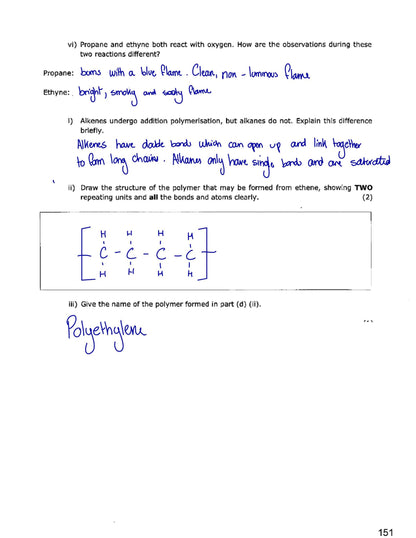 vi) Propane and ethyne both react with oxygen. How are the observations during these
two reactions different?
Propane: burns with a blue flame. Clean, non-luminous flame
Ethyne: bright, smoky and sooty flame
i) Alkenes undergo addition polymerisation, but alkanes do not. Explain this difference
briefly.
Alkenes have double bonds which can open up and link together
to form long chains. Alkanes only have single bonds and are saturated
ii) Draw the structure of the polymer that may be formed from ethene, showing TWO
repeating units and all the bonds and atoms clearly. (2)
H H H H
C - C - C - C
H H H H
iii) Give the name of the polymer formed in part (d) (ii).
Polyethylene
151